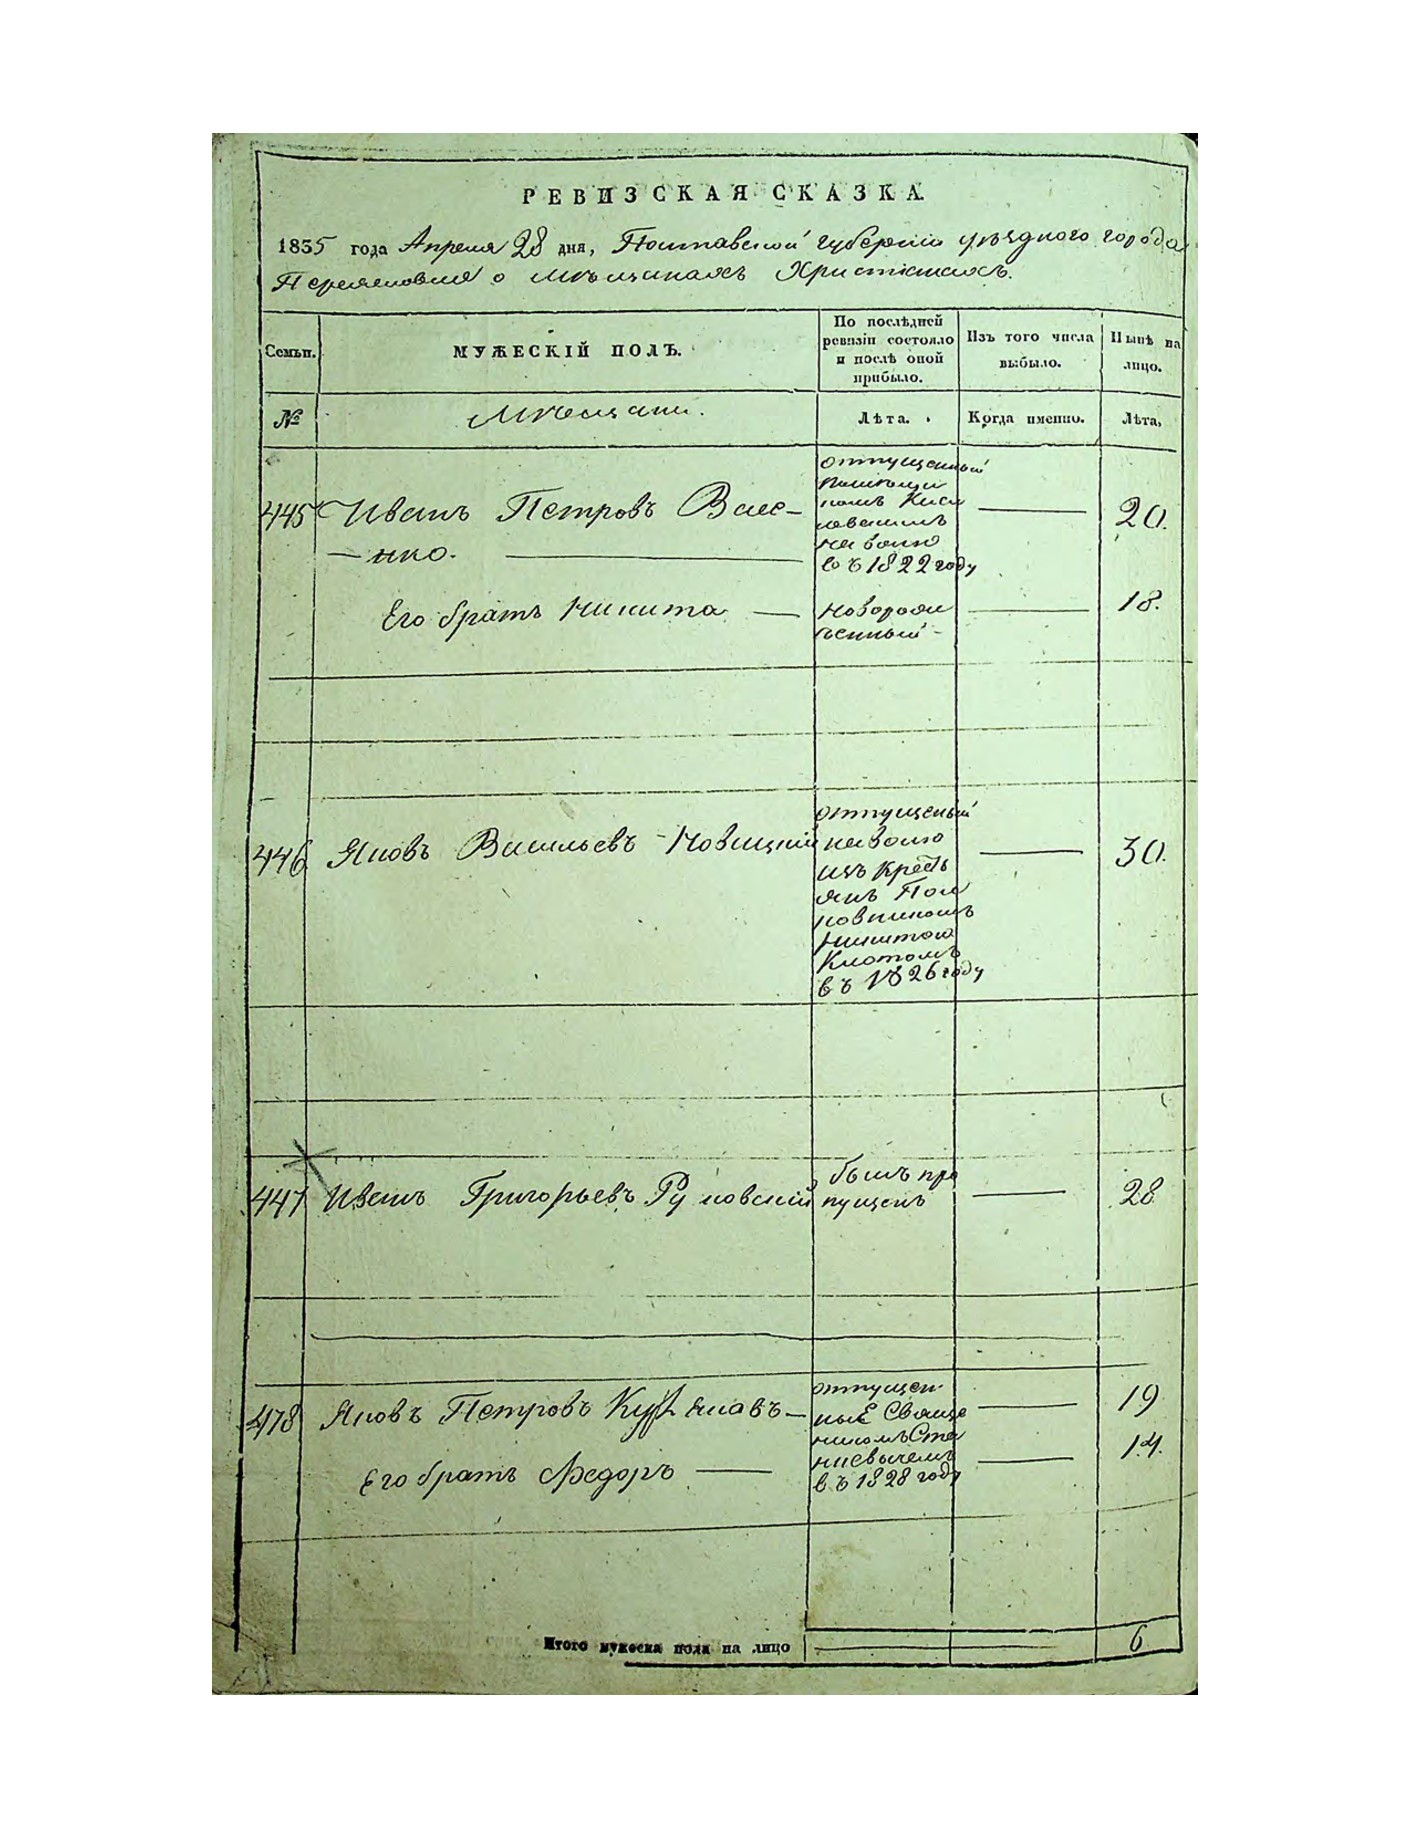 РЕВИЗСКАЯ СКАЗКА.
1835 года Апреля 28 дня, Полтавской губернии уѣздного города
Переяславля о мѣщанахъ Христіянахъ.
Семьи.
МУЖЕСКІЙ ПОЛЪ.
По послѣдней
ревизіи состояло
и послѣ оной
прибыло.
Изъ того числа
выбыло.
Нынѣ на
лицо.
№
Мѣщани.
Лѣта.
Когда именно.
Лѣта,
445
Иванъ Петровъ
нко.
отпущенный
на волю
въ 1822 году
20.
Его братъ Никита
новорож
денный
18.
446
Яковъ Васильевъ Новицкій
отпущеный
на волю
изъ крестъ
янъ Пол
ковникомъ
Никитою
въ 1826 году
30.
447
Иванъ Григорьевъ
былъ про
пущенъ
28
478
Яковъ Петровъ
отпущен
ные Свяще
никомъ
въ 1828 году
19
Его братъ Федоръ
14.
Итого мужеска пола на лицо
6